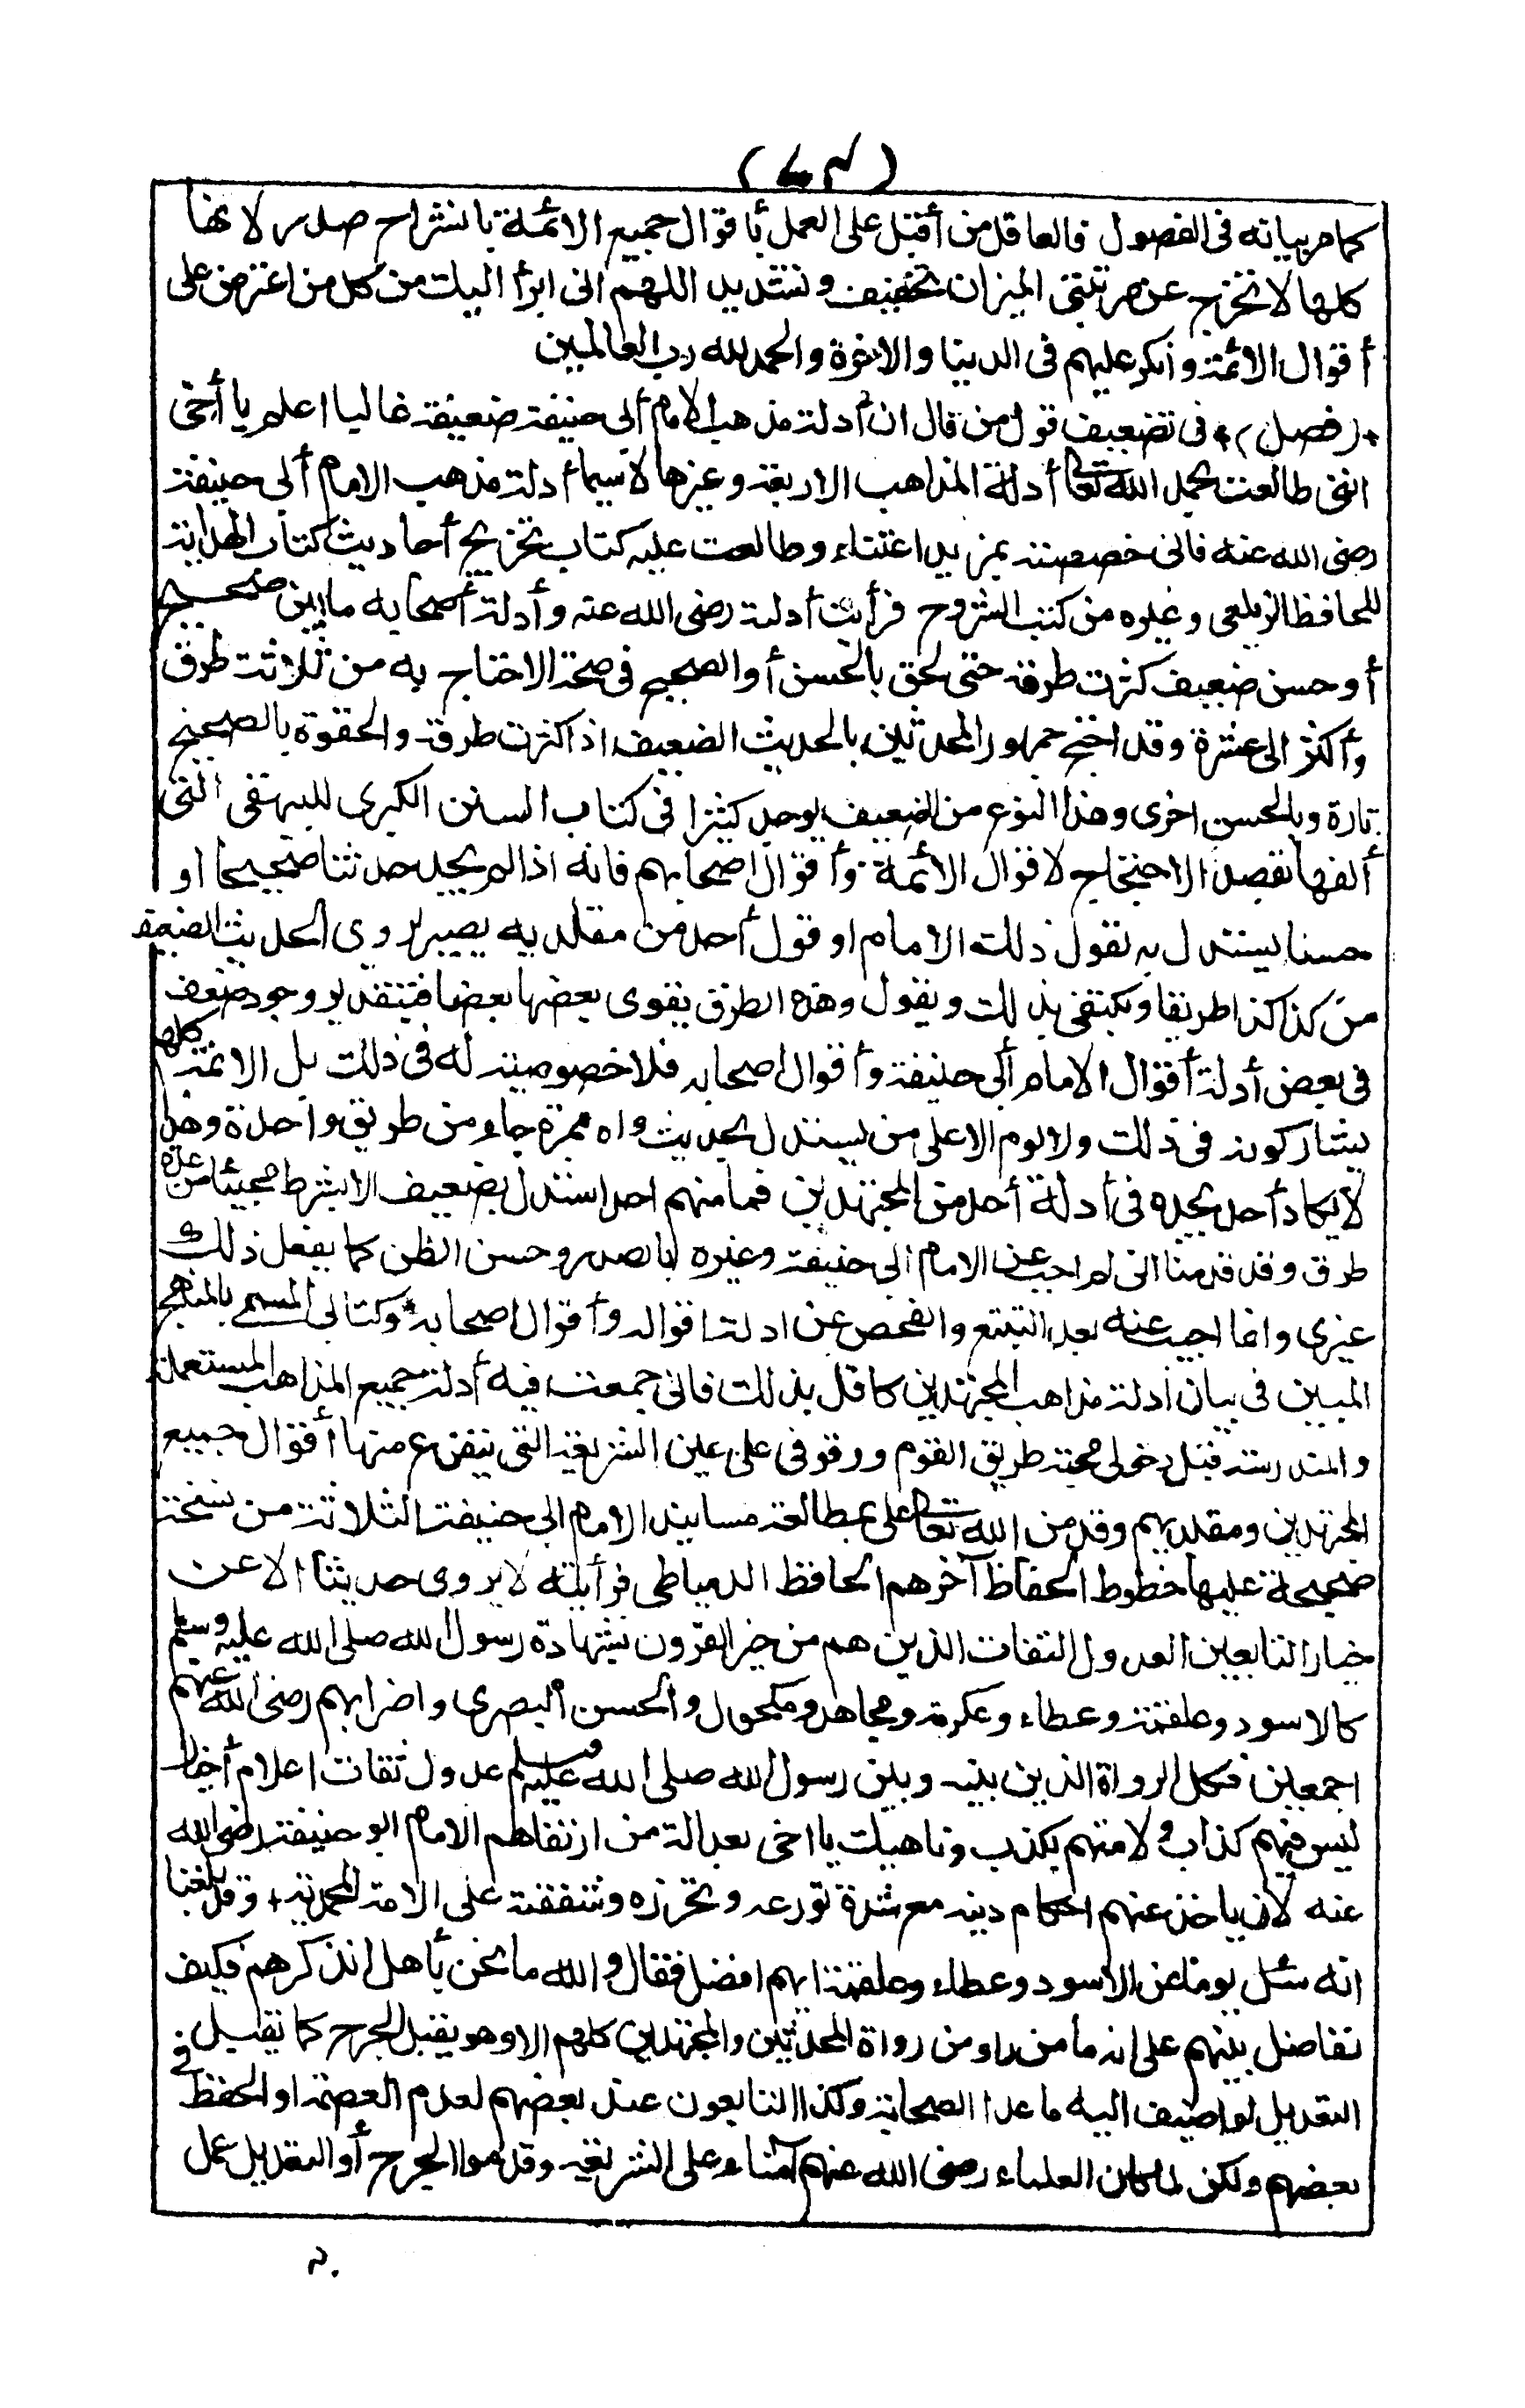 كما مر بيانه فى الفصول فالعاقل من أقبل على العمل بأقوال جميع الائمة بانشراح صدر لانها
كلها لا تخرج عن مرتبتى الميزان تخفيف وتشديد اللهم انى ابرأ اليك من كل من اعترض على
أقوال الائمة وانكر عليهم فى الدنيا والاخرة والحمد لله رب العالمين
(فصل) فى تضعيف قول من قال ان أدلة مذهب الامام أبى حنيفة ضعيفة غالبا اعلم يا أخى
اننى طالعت بحمد الله تعالى أدلة المذاهب الاربعة وغيرها لا سيما أدلة مذهب الامام أبى حنيفة
رضى الله عنه فانى خصصته بمزيد اعتناء وطالعت عليه كتاب تخريج أحاديث كتاب الهداية
للحافظ الزيلعى وغيره من كتب الشروح فرأيت أدلته رضى الله عنه وأدلة أصحابه ما بين صحيح
أو حسن ضعيف كثرت طرقه حتى لحق بالحسن أو الصحيح فى صحة الاحتاج به من ثلاثة طرق
وأكثر الى عشرة وقد احتج جمهور المحدثين بالحديث الضعيف اذا كثرت طرقه والحقوه بالصحيح
تارة وبالحسن اخرى وهذا النوع من الضعيف يوجد كثيرا فى كتاب السنن الكبرى للبيهقى التى
ألفها بقصد الاحتجاج لاقوال الأئمة وأقوال اصحابهم فانه اذا لم يجد حديثا صحيحا او
حسنا يستدل به لقول ذلك الامام او قول أحد من مقلديه يصير يروى الحديث الضعيف
من كذا كذا طريقا ويكتفى بذلك ويقول وهذه الطرق يقوى بعضها بعضا فبتقدير وجود ضعف
فى بعض أدلة أقوال الامام أبى حنيفة وأقوال اصحابه فلا خصوصية له فى ذلك بل الائمة كلهم
يشاركونه فى ذلك ولا لوم الا على من يستدل بحديث واه بمرة جاء من طريق واحدة وهذا
لا يكاد أحد يجده فى أدلة أحد من المجتهدين فما منهم احد استدل بضعيف الا بشرط مجيئه من عدة
طرق وقد قدمنا انى لم اجب عن الامام ابى حنيفة وغيره بالصدر وحسن الظن كما يفعل ذلك
غيرى وانما اجيب عنه بعد التتبع والفحص عن ادلة اقواله وأقوال اصحابه وكتابى المسمى بالمنهج
المبين فى بيان أدلة مذاهب المجتهدين كافل بذلك فانى جمعت فيه أدلة جميع المذاهب المستعملة
والمندرسة قبل دخولى محبة طريق القوم ووقوفى على عين الشريعة التى يتفرع منها أقوال جميع
المجتهدين ومقلديهم وقد من الله تعالى على بمطالعة مسانيد الامام ابى حنيفة الثلاثة من نسخة
صحيحة عليها خطوط الحفاظ آخرهم الحافظ الدمياطى فرأيته لا يروى حديثا الا عن
خيار التابعين العدول الثقات الذين هم من خير القرون بشهادة رسول الله صلى الله عليه وسلم
كالاسود وعلقمة وعطاء وعكرمة ومجاهد ومكحول والحسن البصرى واضرابهم رضى الله عنهم
اجمعين فكل الرواة الذين بينه وبين رسول الله صلى الله عليه وسلم عدول ثقات اعلام أخيار
ليس فيهم كذاب ولا متهم بكذب وناهيك يا اخى بعدالة من ارتضاهم الامام ابو حنيفة رضى الله
عنه لان ياخذ عنهم احكام دينه مع شدة تورعه وتحرزه وشفقته على الامة المحمدية وقد بلغنا
انه سئل يوما عن الاسود وعطاء وعلقمة ايهم افضل فقال والله ما نحن بأهل ان نذكرهم فكيف
نفاضل بينهم على انه ما من راو من رواة المحدثين والمجتهدين كلهم الا وهو يقبل الجرح كما يقبل
التعديل لو اضيف اليه ما عدا الصحابة وكذا التابعون عند بعضهم لعدم العصمة او الحفظ فى
بعضهم ولكن لما كان العلماء رضى الله عنهم أمناء على الشريعة وقدموا الجرح أو التعديل عمل